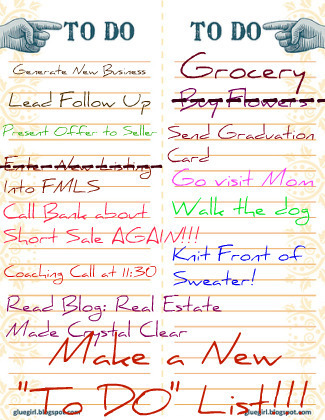 TO DO
Generate New Business
Lead Follow Up
Present Offer to Seller
Enter New Listing
Into FMLS
Call Bank about
Short Sale AGAIN!!!
Coaching Call at 11:30
Read Blog: Real Estate
Made Crystal Clear
TO DO
Grocery
Buy Flowers
Send Graduation
Card
Go visit Mom
Walk the dog
Knit Front of
Sweater!
Make a New
"To DO" List!!!!
gluegirl.blogspot.com
gluegirl.blogspot.com